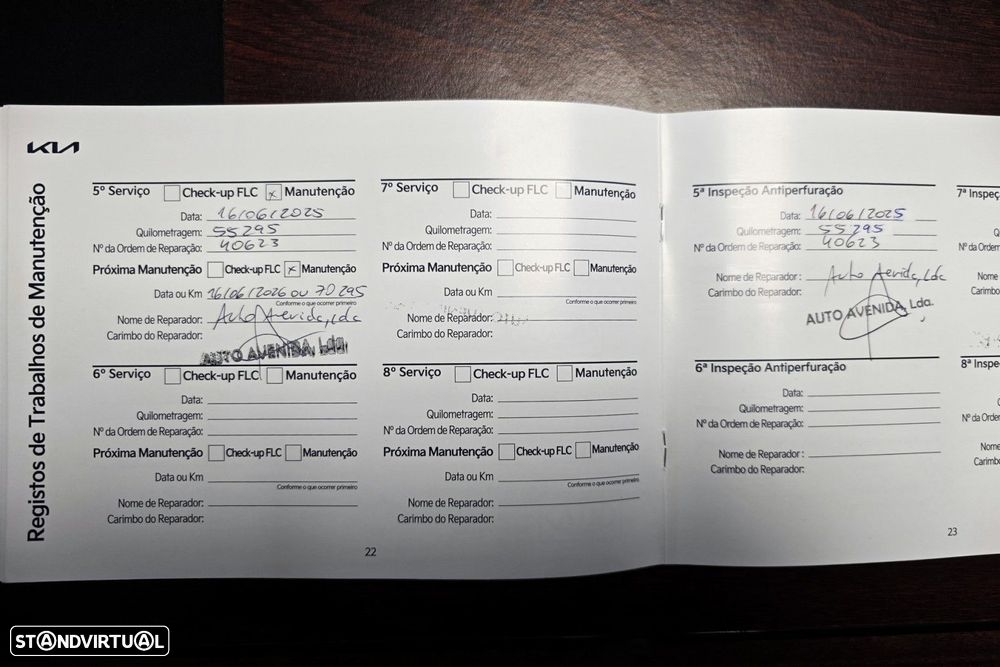 KIA
Registos de Trabalhos de Manutenção
5º Serviço Check-up FLC x Manutenção
Data: 16/06/2025
Quilometragem: 55295
Nº da Ordem de Reparação: 40623
Próxima Manutenção Check-up FLC x Manutenção
Data ou Km 16/06/2026 ou 70295
Conforme o que ocorrer primeiro
Nome de Reparador: Auto Avenida, Lda
Carimbo do Reparador:
AUTO AVENIDA, Lda.
6º Serviço Check-up FLC Manutenção
Data:
Quilometragem:
Nº da Ordem de Reparação:
Próxima Manutenção Check-up FLC Manutenção
Data ou Km
Conforme o que ocorrer primeiro
Nome de Reparador:
Carimbo do Reparador:
7º Serviço Check-up FLC Manutenção
Data:
Quilometragem:
Nº da Ordem de Reparação:
Próxima Manutenção Check-up FLC Manutenção
Data ou Km
Conforme o que ocorrer primeiro
Nome de Reparador:
Carimbo do Reparador:
8º Serviço Check-up FLC Manutenção
Data:
Quilometragem:
Nº da Ordem de Reparação:
Próxima Manutenção Check-up FLC Manutenção
Data ou Km
Conforme o que ocorrer primeiro
Nome de Reparador:
Carimbo do Reparador:
22
5ª Inspeção Antiperfuração
Data: 16/06/2025
Quilometragem: 55295
Nº da Ordem de Reparação: 40623
Nome de Reparador: Auto Avenida, Lda
Carimbo do Reparador:
AUTO AVENIDA, Lda.
6ª Inspeção Antiperfuração
Data:
Quilometragem:
Nº da Ordem de Reparação:
Nome de Reparador:
Carimbo do Reparador:
7ª Inspe
Q
Nº da Ordem
Nome
Carimb
8ª Inspe
Q
Nº da Ordem
Nome
Carimb
23
STANDVIRTUAL